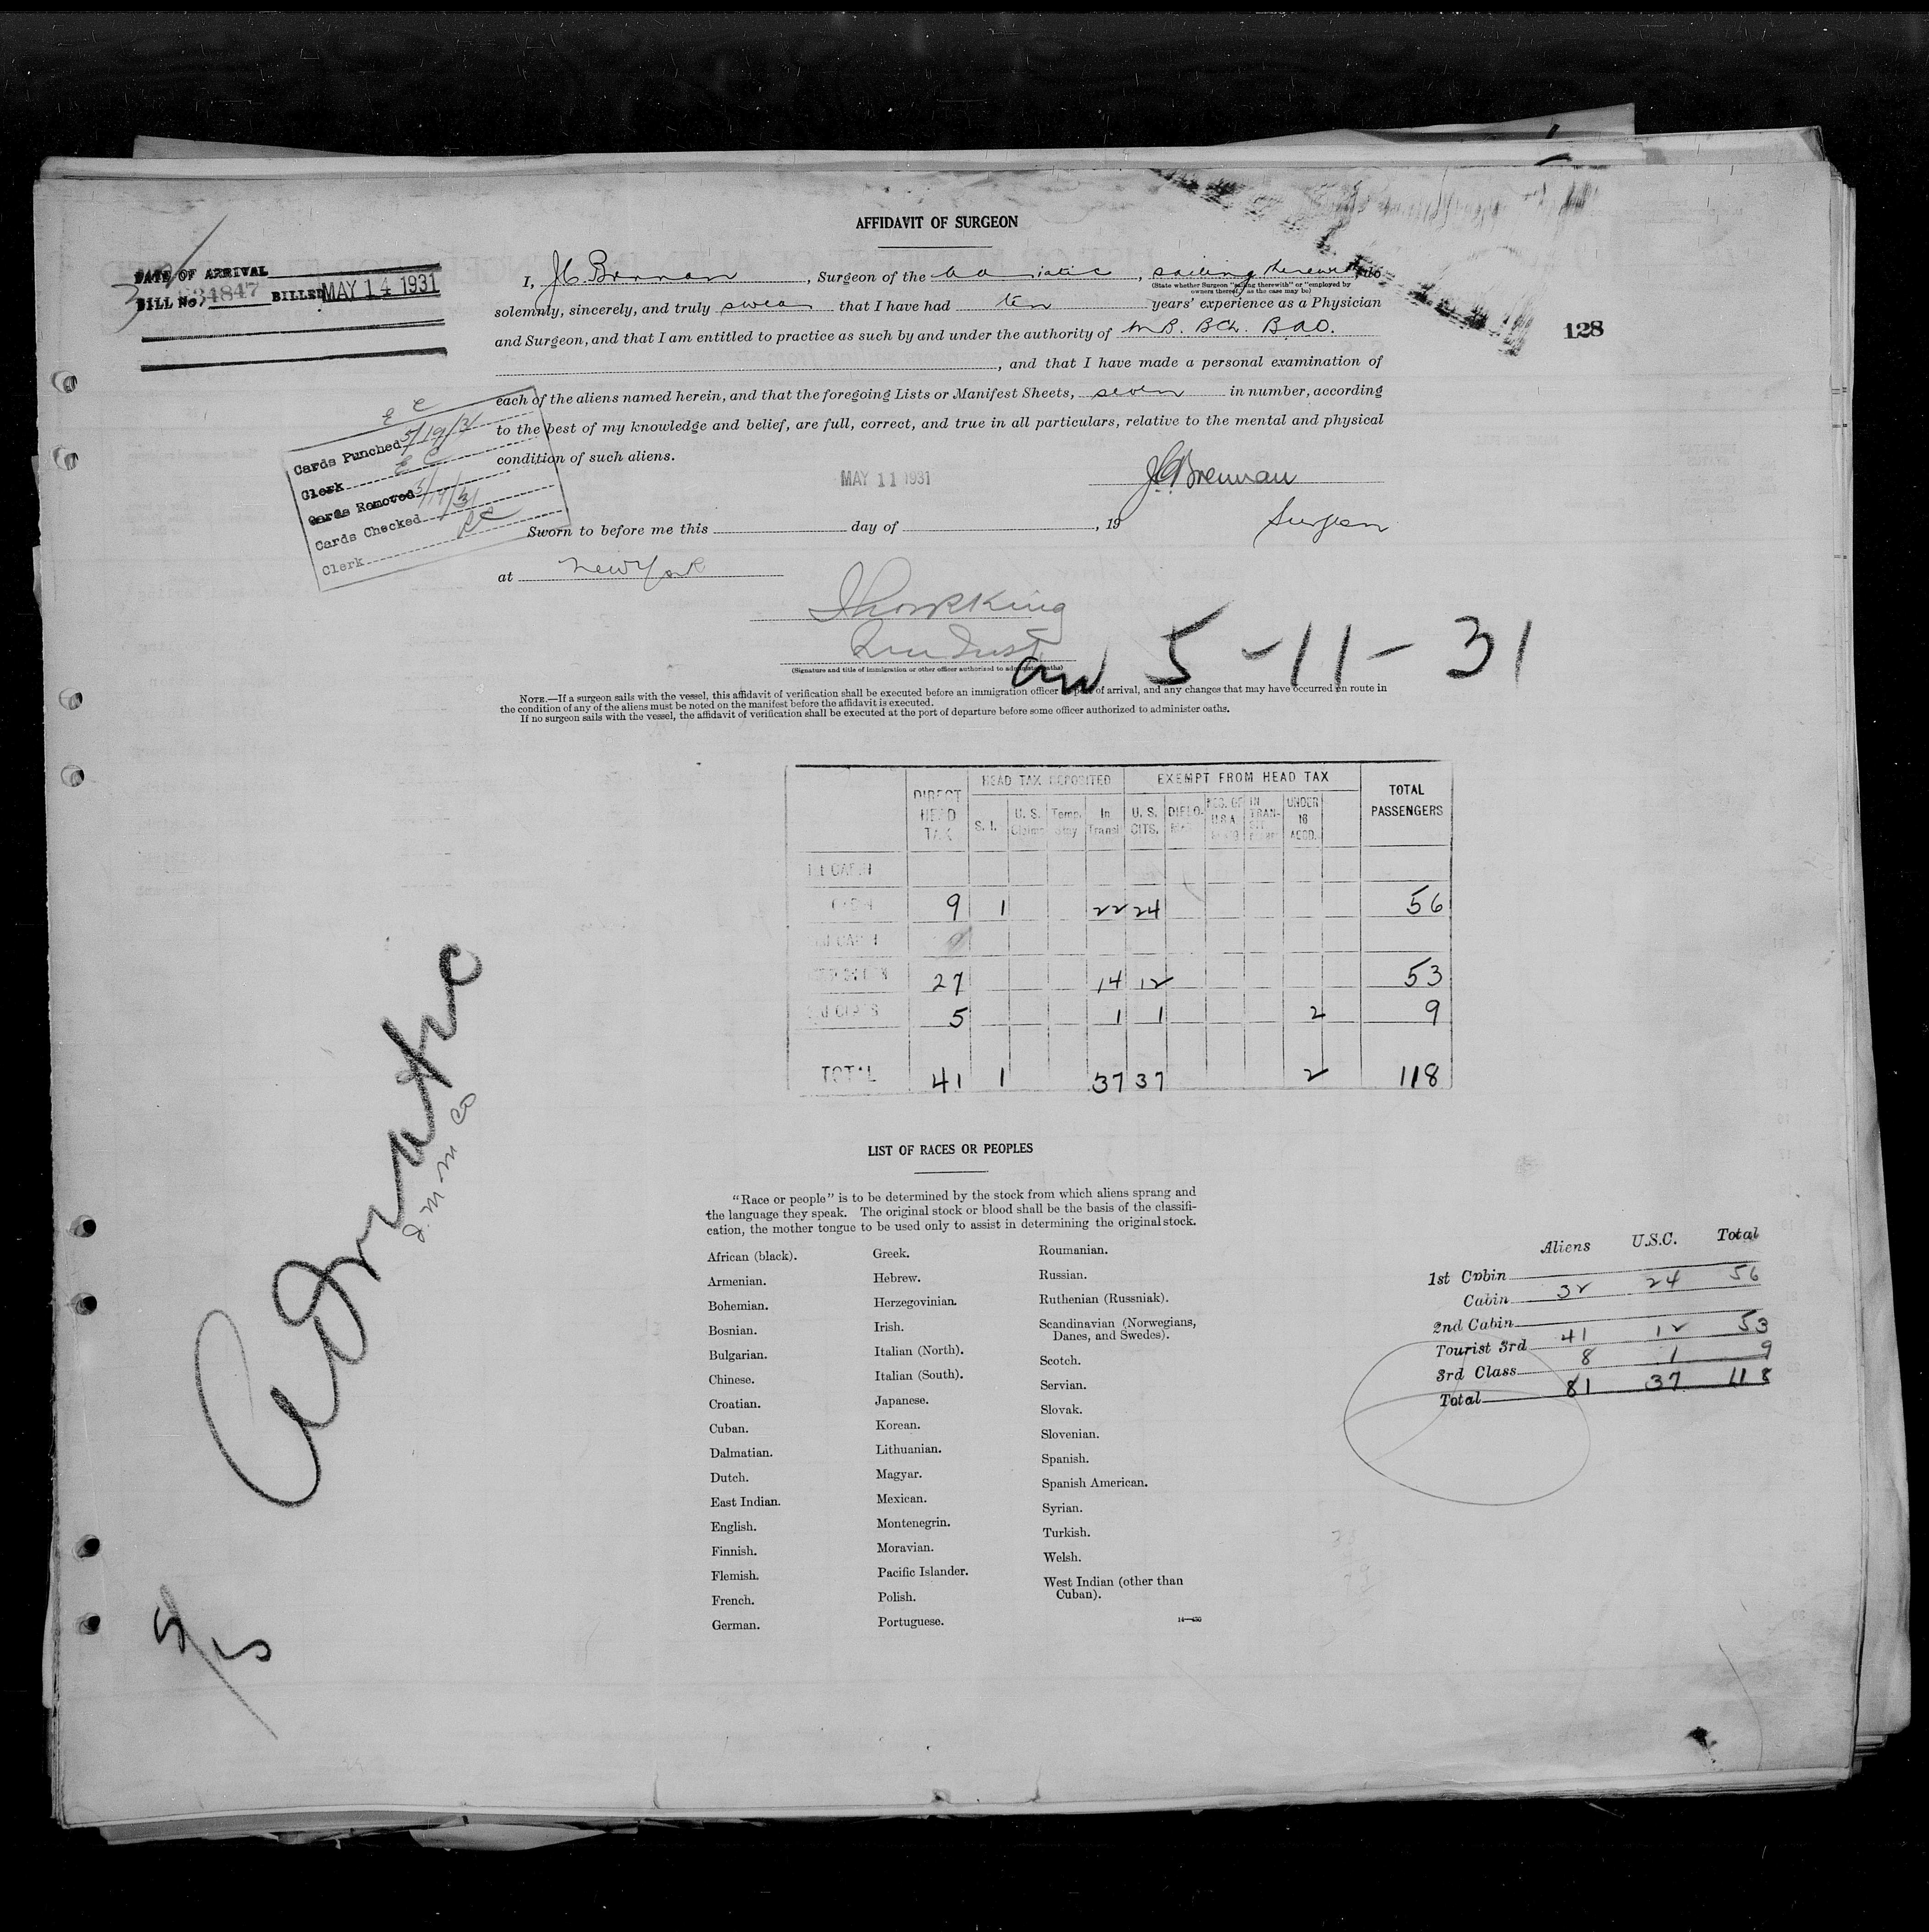 AFFIDAVIT OF SURGEON
DATE OF ARRIVAL
BILL No. 34847 BILLED MAY 14 1931
128
I, J.C. Brennan, Surgeon of the Adriatic, sailing therewith, do
(State whether Surgeon "sailing therewith" or "employed by
owners thereof," as the case may be)
solemnly, sincerely, and truly swear that I have had ten years' experience as a Physician
and Surgeon, and that I am entitled to practice as such by and under the authority of M.B. BCh. BAO.
, and that I have made a personal examination of
each of the aliens named herein, and that the foregoing Lists or Manifest Sheets, seven in number, according
to the best of my knowledge and belief, are full, correct, and true in all particulars, relative to the mental and physical
condition of such aliens.
E C
Cards Punched 5/19/31
Clerk E C
Cards Removed 5/19/31
Cards Checked
Clerk
MAY 11 1931
J.C. Brennan
Surgeon
Sworn to before me this day of , 19
at New York
(Signature and title of immigration or other officer authorized to administer oaths)
5-11-31
NOTE.—If a surgeon sails with the vessel, this affidavit of verification shall be executed before an immigration officer at port of arrival, and any changes that may have occurred en route in
the condition of any of the aliens must be noted on the manifest before the affidavit is executed.
If no surgeon sails with the vessel, the affidavit of verification shall be executed at the port of departure before some officer authorized to administer oaths.
DIRECT HEAD TAX
HEAD TAX DEPOSITED
EXEMPT FROM HEAD TAX
TOTAL PASSENGERS
S. I. U. S. Claims Temp. Stay In Transit U. S. CITS. DIPLO- UNDER 16 ACCD.
1st CABIN
CABIN 9 1 22 24 56
2d CABIN
27 14 12 53
3d CLASS 5 1 1 2 9
TOTAL 41 1 37 37 2 118
Adriatic
5/15
LIST OF RACES OR PEOPLES
"Race or people" is to be determined by the stock from which aliens sprang and
the language they speak. The original stock or blood shall be the basis of the classifi-
cation, the mother tongue to be used only to assist in determining the original stock.
African (black).
Armenian.
Bohemian.
Bosnian.
Bulgarian.
Chinese.
Croatian.
Cuban.
Dalmatian.
Dutch.
East Indian.
English.
Finnish.
Flemish.
French.
German.
Greek.
Hebrew.
Herzegovinian.
Irish.
Italian (North).
Italian (South).
Japanese.
Korean.
Lithuanian.
Magyar.
Mexican.
Montenegrin.
Moravian.
Pacific Islander.
Polish.
Portuguese.
Roumanian.
Russian.
Ruthenian (Russniak).
Scandinavian (Norwegians,
Danes, and Swedes).
Scotch.
Servian.
Slovak.
Slovenian.
Spanish.
Spanish American.
Syrian.
Turkish.
Welsh.
West Indian (other than
Cuban).
Aliens U.S.C. Total
1st Cabin
Cabin 32 24 56
2nd Cabin
Tourist 3rd 41 12 53
3rd Class 8 1 9
Total 81 37 118